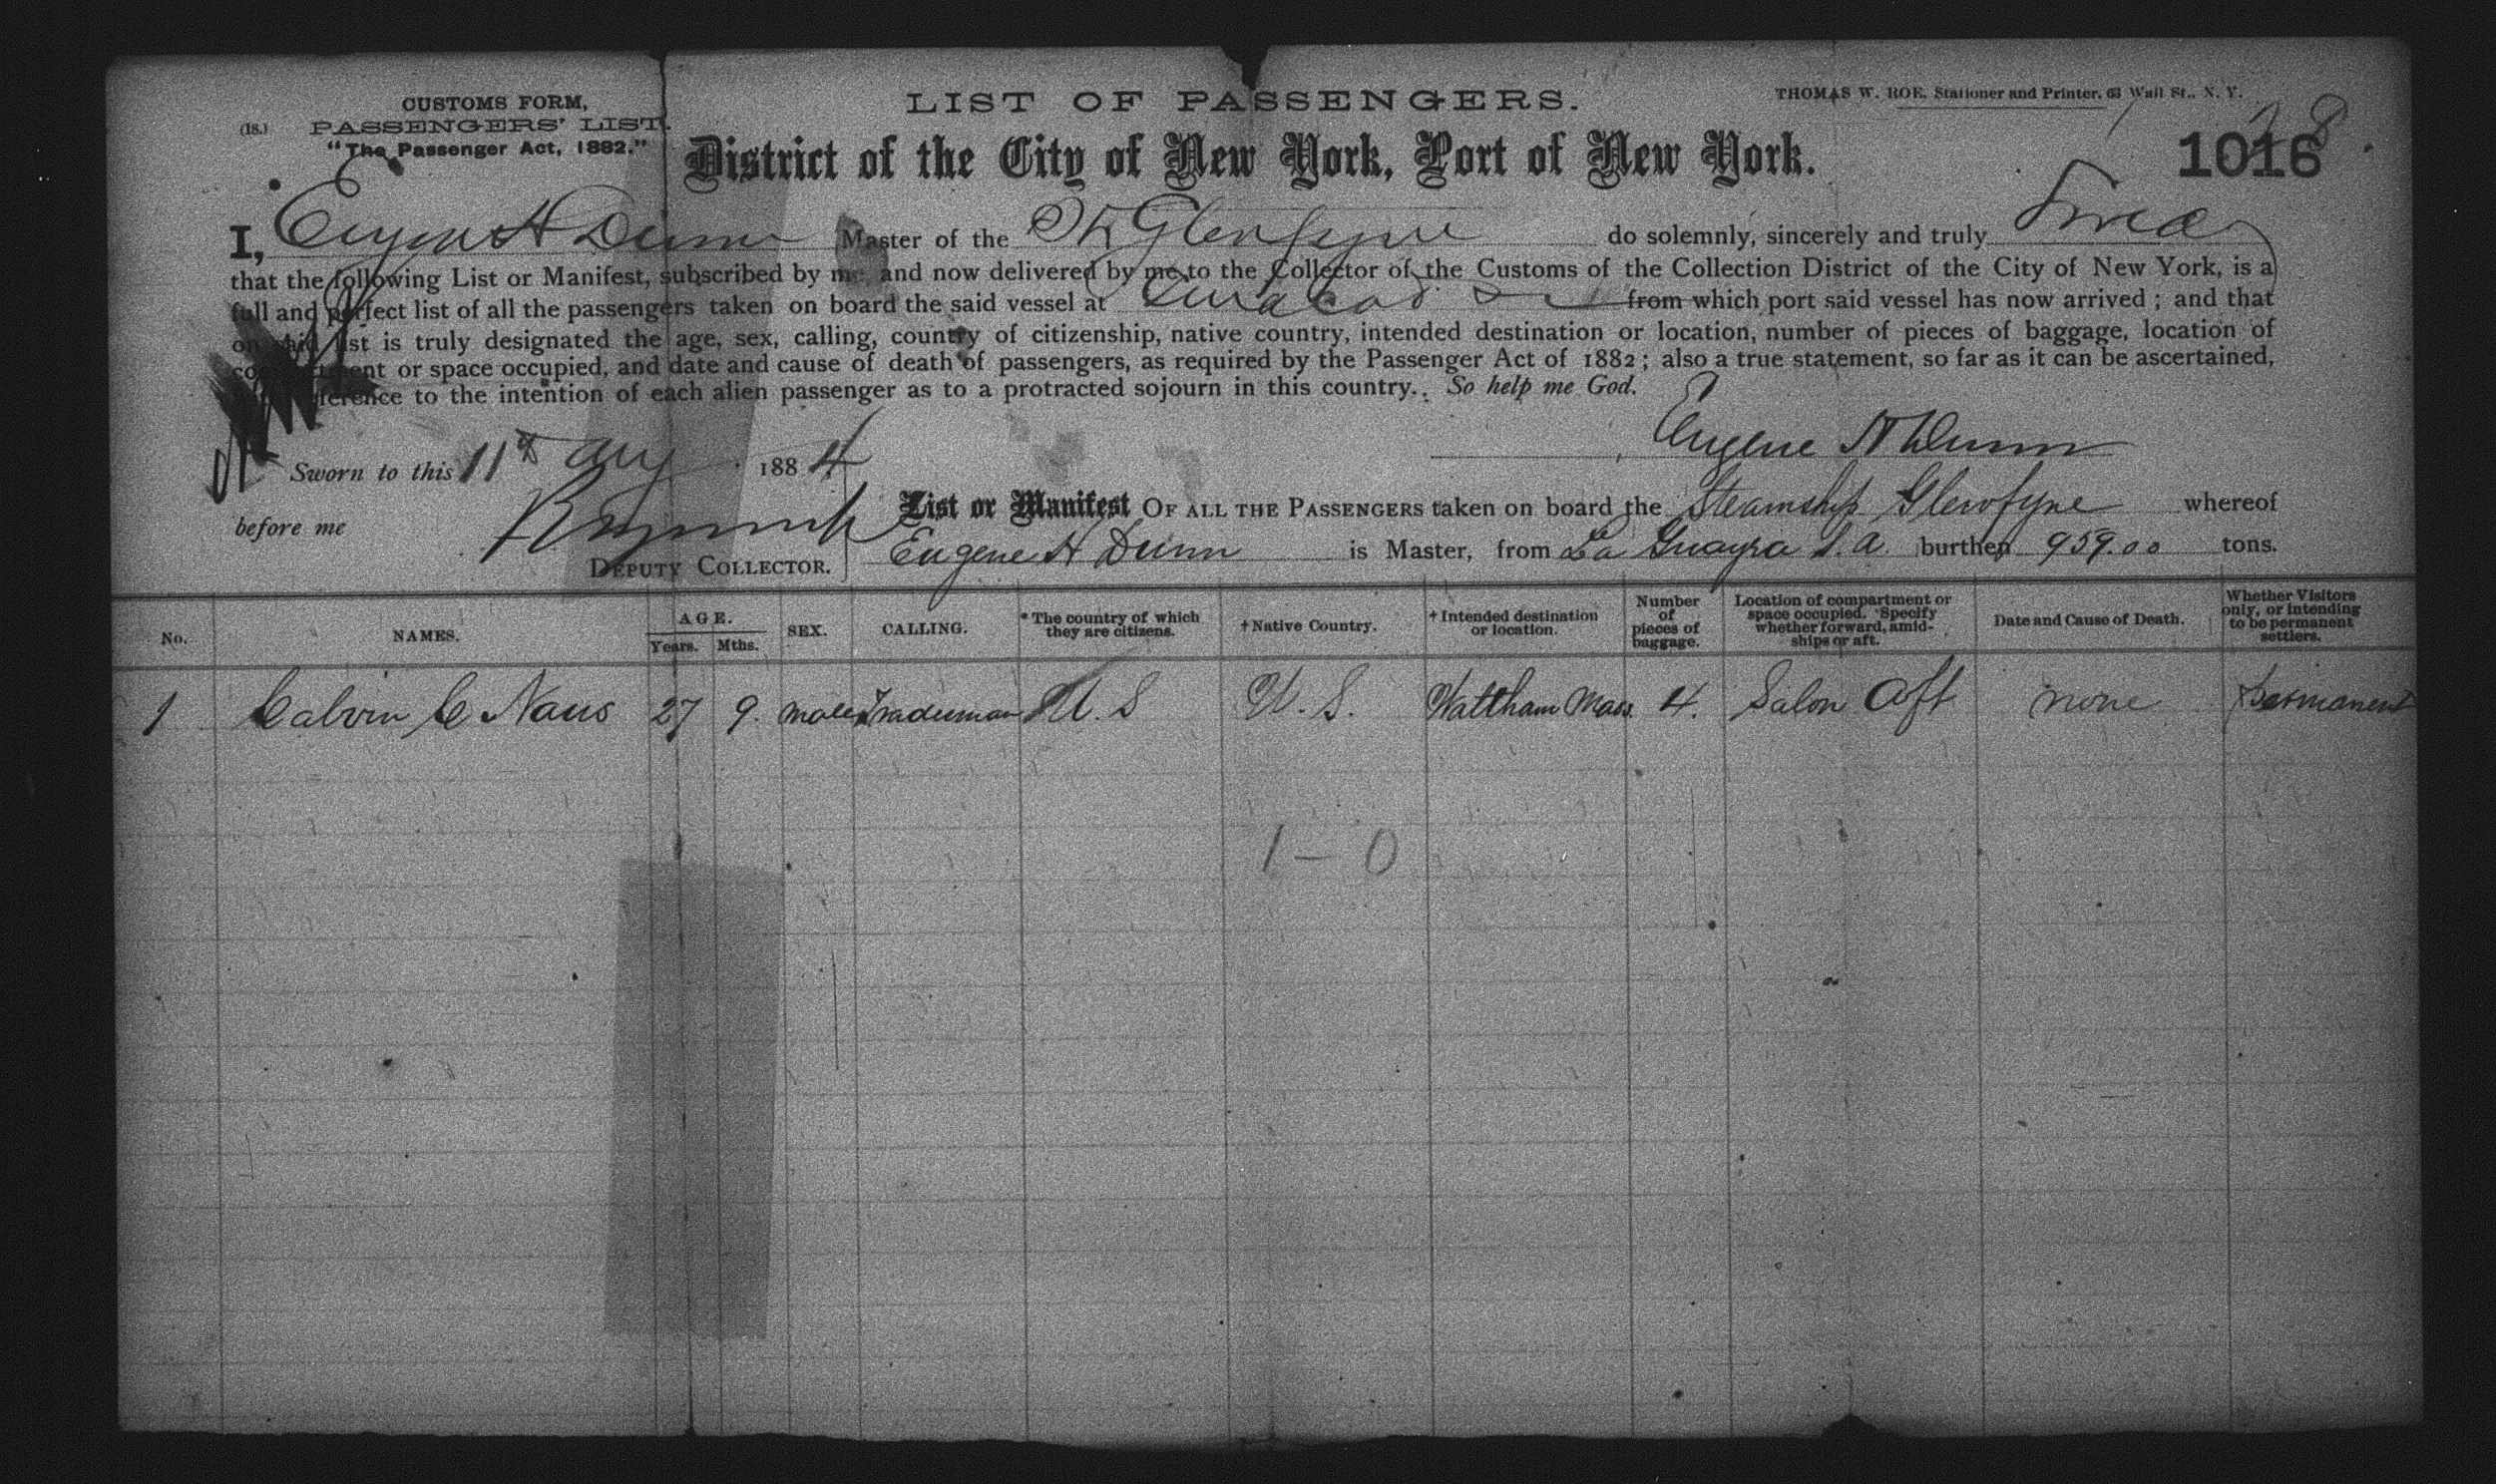 CUSTOMS FORM,
(18.) PASSENGERS' LIST.
"The Passenger Act, 1882."
LIST OF PASSENGERS.
THOMAS W. ROE. Stationer and Printer. 63 Wall St., N. Y.
District of the City of New York, Port of New York.
1016
I, Eugene H Dunn Master of the Glenfyne do solemnly, sincerely and truly Swear
that the following List or Manifest, subscribed by me and now delivered by me to the Collector of the Customs of the Collection District of the City of New York, is a
full and perfect list of all the passengers taken on board the said vessel at Curacao from which port said vessel has now arrived ; and that
on said list is truly designated the age, sex, calling, country of citizenship, native country, intended destination or location, number of pieces of baggage, location of
compartment or space occupied, and date and cause of death of passengers, as required by the Passenger Act of 1882 ; also a true statement, so far as it can be ascertained,
reference to the intention of each alien passenger as to a protracted sojourn in this country. So help me God.
Eugene H Dunn
Sworn to this 11th Aug 1884
before me
DEPUTY COLLECTOR.
List or Manifest OF ALL THE PASSENGERS taken on board the Steamship Glenfyne whereof
Eugene H Dunn is Master, from La Guayra S. A. burthen 959.00 tons.
No. NAMES. AGE. Years. Mths. SEX. CALLING. * The country of which they are citizens. † Native Country. † Intended destination or location. Number of pieces of baggage. Location of compartment or space occupied. Specify whether forward, amidships or aft. Date and Cause of Death. Whether Visitors only, or intending to be permanent settlers.
1 Calvin C Naus 27 9. male Tradesman U. S U. S. Waltham Mass. 4. Salon Aft none Permanent
1 - 0